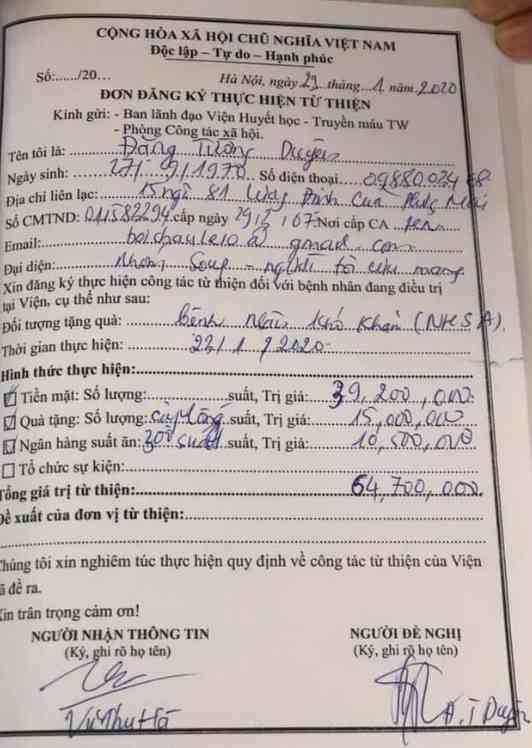 CỘNG HÒA XÃ HỘI CHỦ NGHĨA VIỆT NAM
Độc lập – Tự do – Hạnh phúc
Số:....../20...
Hà Nội, ngày 23 tháng 1 năm 2020
ĐƠN ĐĂNG KÝ THỰC HIỆN TỪ THIỆN
Kính gửi: - Ban lãnh đạo Viện Huyết học - Truyền máu TW
- Phòng Công tác xã hội.
Tên tôi là: Đặng Tường Duyên
Ngày sinh: 27/9/1970 Số điện thoại
Địa chỉ liên lạc: 15 ngõ 81
Số CMTND: cấp ngày Nơi cấp CA
Email: @ gmail.com
Đại diện: Nhóm Soup -
Xin đăng ký thực hiện công tác từ thiện đối với bệnh nhân đang điều trị
tại Viện, cụ thể như sau:
Đối tượng tặng quà: bệnh nhân khó khăn
Thời gian thực hiện: 23/1/2020
Hình thức thực hiện:
☑ Tiền mặt: Số lượng: suất, Trị giá: 39,200,000
☑ Quà tặng: Số lượng: suất, Trị giá: 15,000,000
☑ Ngân hàng suất ăn: 300 suất suất, Trị giá: 10,500,000
☐ Tổ chức sự kiện:
Tổng giá trị từ thiện: 64,700,000.
Đề xuất của đơn vị từ thiện:
Chúng tôi xin nghiêm túc thực hiện quy định về công tác từ thiện của Viện
đã đề ra.
Xin trân trọng cảm ơn!
NGƯỜI NHẬN THÔNG TIN
(Ký, ghi rõ họ tên)
NGƯỜI ĐỀ NGHỊ
(Ký, ghi rõ họ tên)
Vũ Thu Hà
Đ. T Duyên